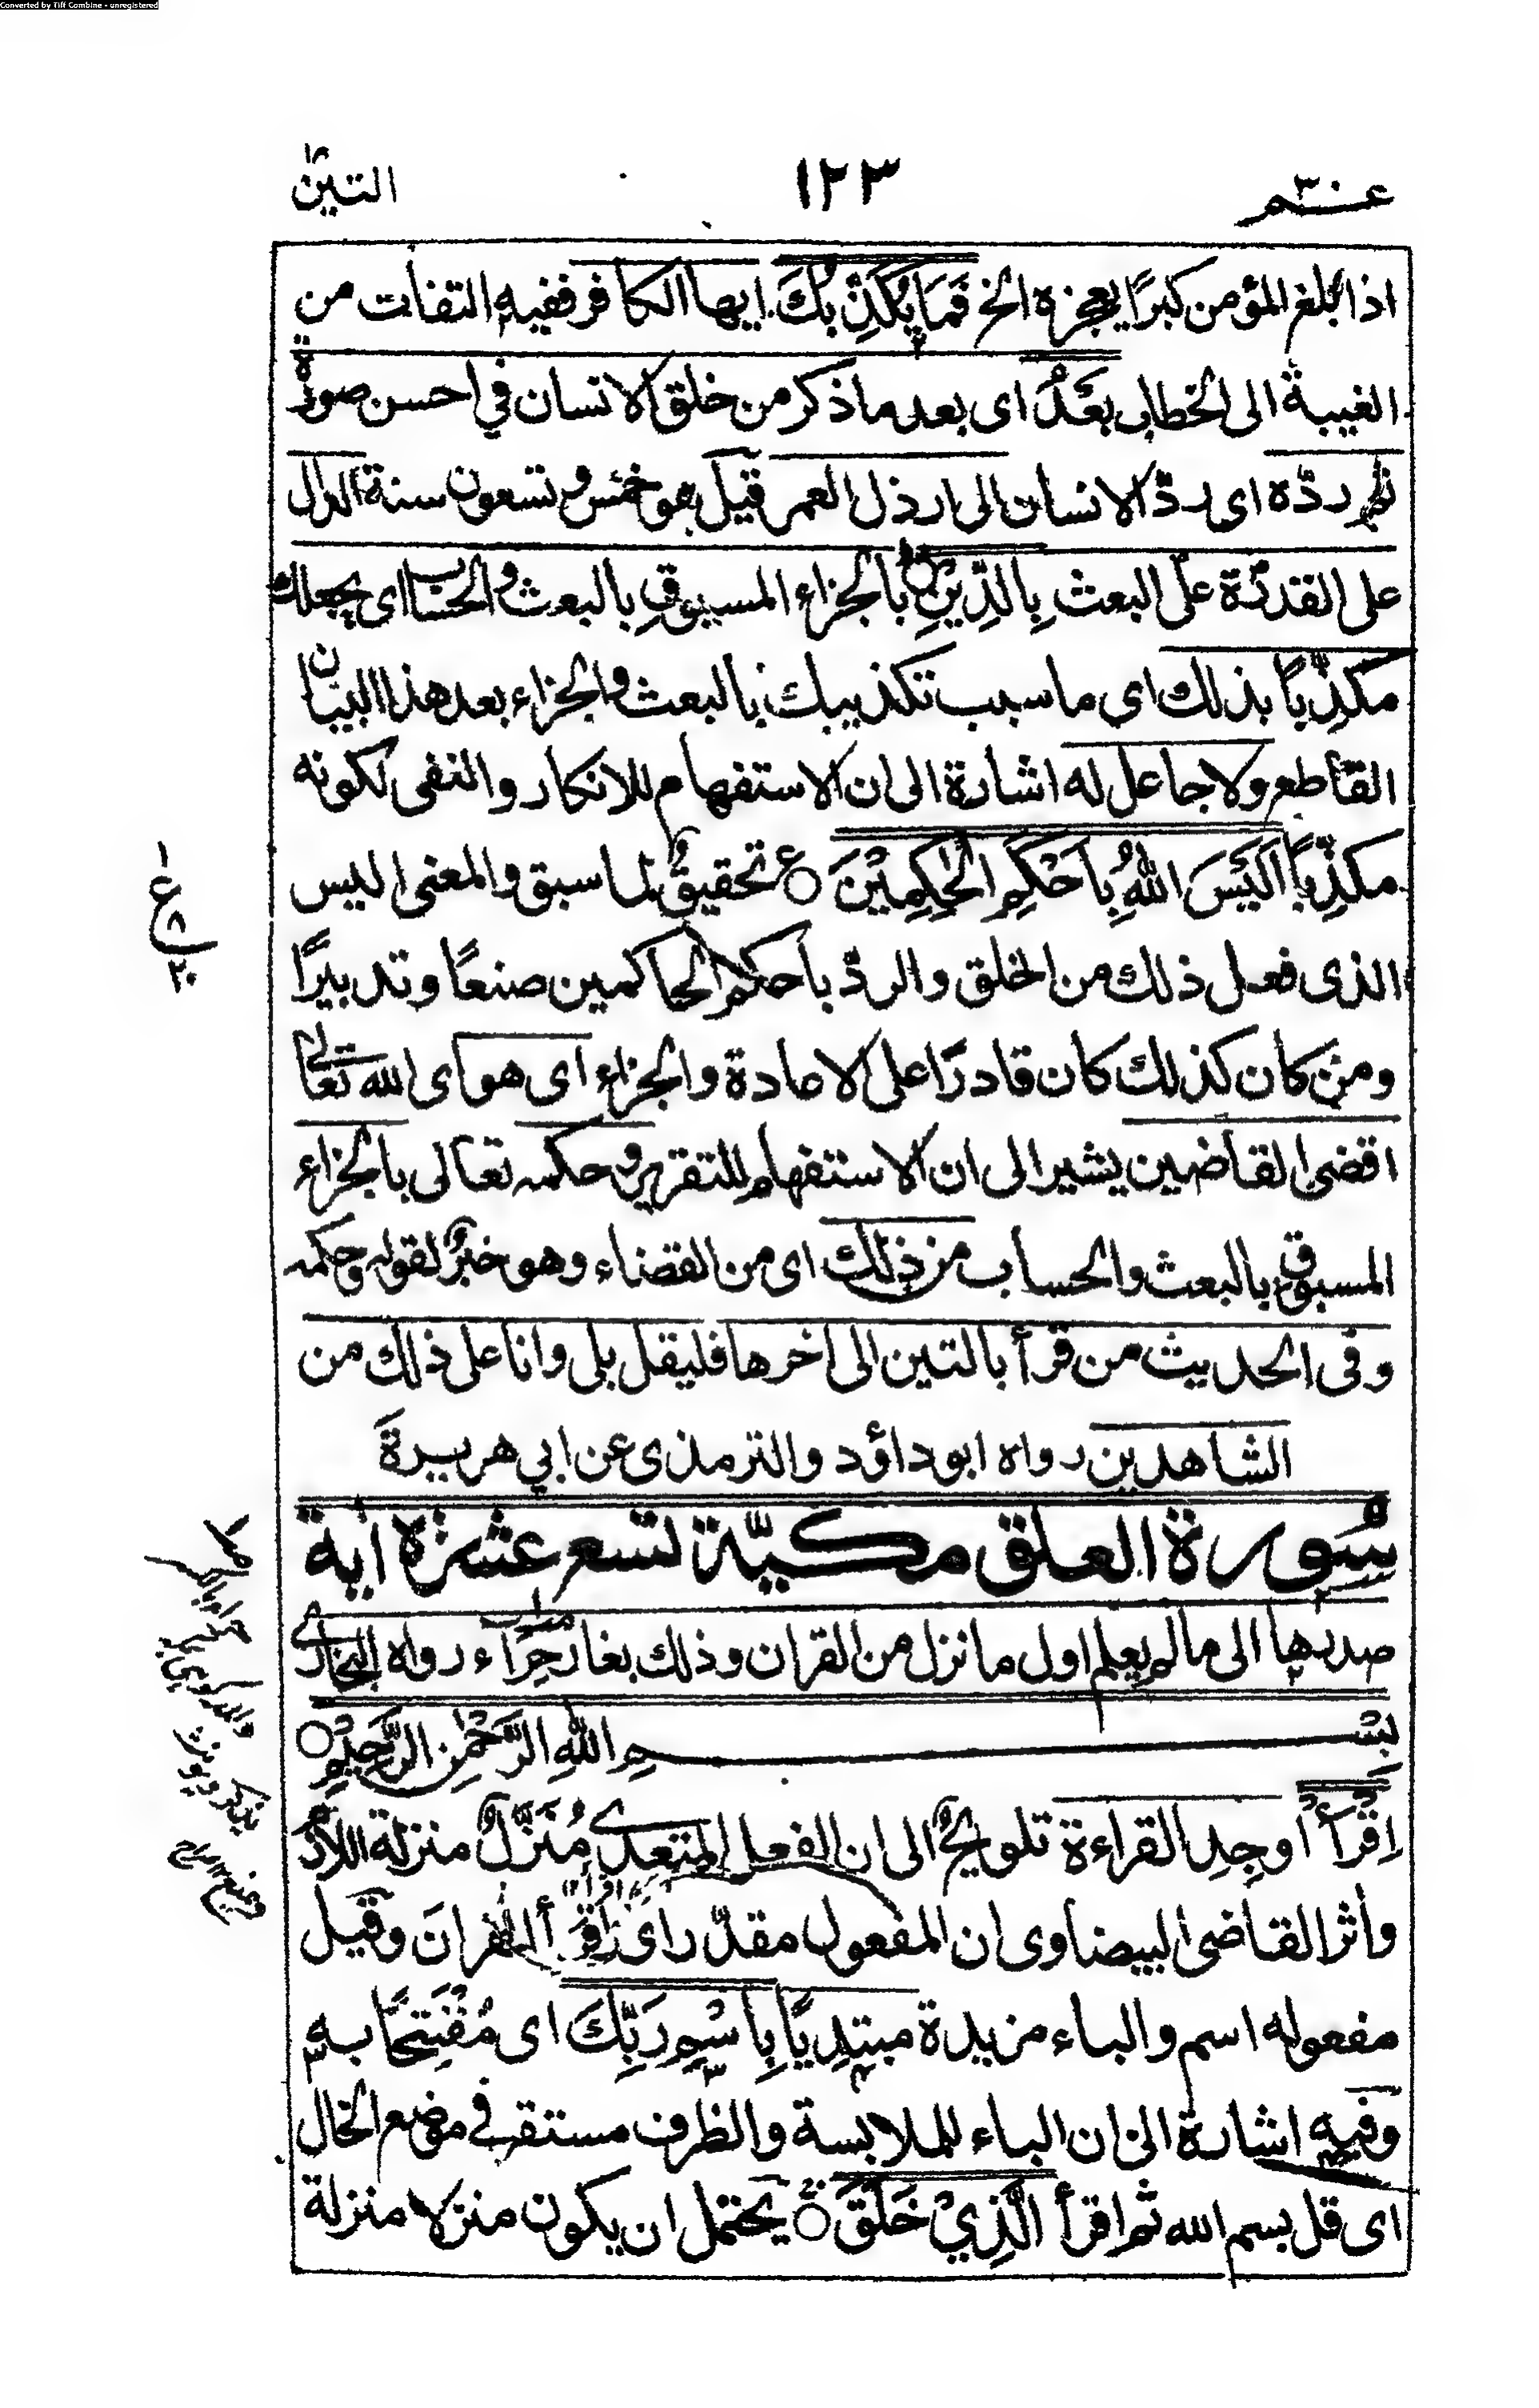 Converted by Tiff Combine - unregistered
عـم ٣٠
١٢٣
التين
اذا بلغ المؤمن كبرًا يعجزه الخ فَمَا يُكَذِّبُكَ ايها الكافر ففيه التفات من
الغيبة الى الخطاب بَعْدُ اى بعد ما ذكر من خلق الانسان في احسن صورة
ثم ردّه اى ردّ الانسان الى ارذل العمر قيل هو خمس وتسعون سنة الدال
على القدرة على البعث بِالدِّيْنِ بالجزاء المسبوق بالبعث والحساب اى يجعلك
مكذِّبًا بذلك اى ما سبب تكذيبك بالبعث والجزاء بعد هذا البيان
القاطع ولا جاعل له اشارة الى ان الاستفهام للانكار والنفى لكونه
مكذِّبًا اَلَيْسَ اللّٰهُ بِاَحْكَمِ الْحٰكِمِيْنَ ○ ع تحقيقٌ لما سبق والمعنى اليس
الذى فعل ذلك من الخلق والردّ باحكم الحاكمين صنعًا وتدبيرًا
ومن كان كذلك كان قادرًا على الاعادة والجزاء اى هو اى الله تعالى
اقضى القاضين يشير الى ان الاستفهام للتقرير وحكمه تعالى بالجزاء
المسبوق بالبعث والحساب من ذلك اى من القضاء وهو خبرٌ لقوله وحكمه
وفى الحديث من قرأ بالتين الى اخرها فليقل بلى وانا على ذلك من
الشاهدين رواه ابو داؤد والترمذى عن ابي هريرة
سُورة العلق مكيّة تسع عشرة اٰية
صدرها الى ما لم يعلم اول ما نزل من القران وذلك بغار حِرَاء رواه البخارى
بِسْمِ اللّٰهِ الرَّحْمٰنِ الرَّحِيْمِ ○
اِقْرَأْ اوجِدِ القراءة تلويحٌ الى ان الفعل المتعدى مُنَزَّلٌ منزلة اللازم
وأثر القاضى البيضاوى ان المفعول مقدّر اى اِقْرَأ القرانَ وقيل
مفعوله اسم والباء مزيدة مبتدِيًا بِاسْمِ رَبِّكَ اى مُفْتَتِحًا به
وفيه اشارة الى ان الباء للملابسة والظرف مستقر في موضع الحال
اى قل بسم الله ثم اقرأ الَّذِيْ خَلَقَ ○ يحتمل ان يكون منزلا منزلة
ع
٢٠